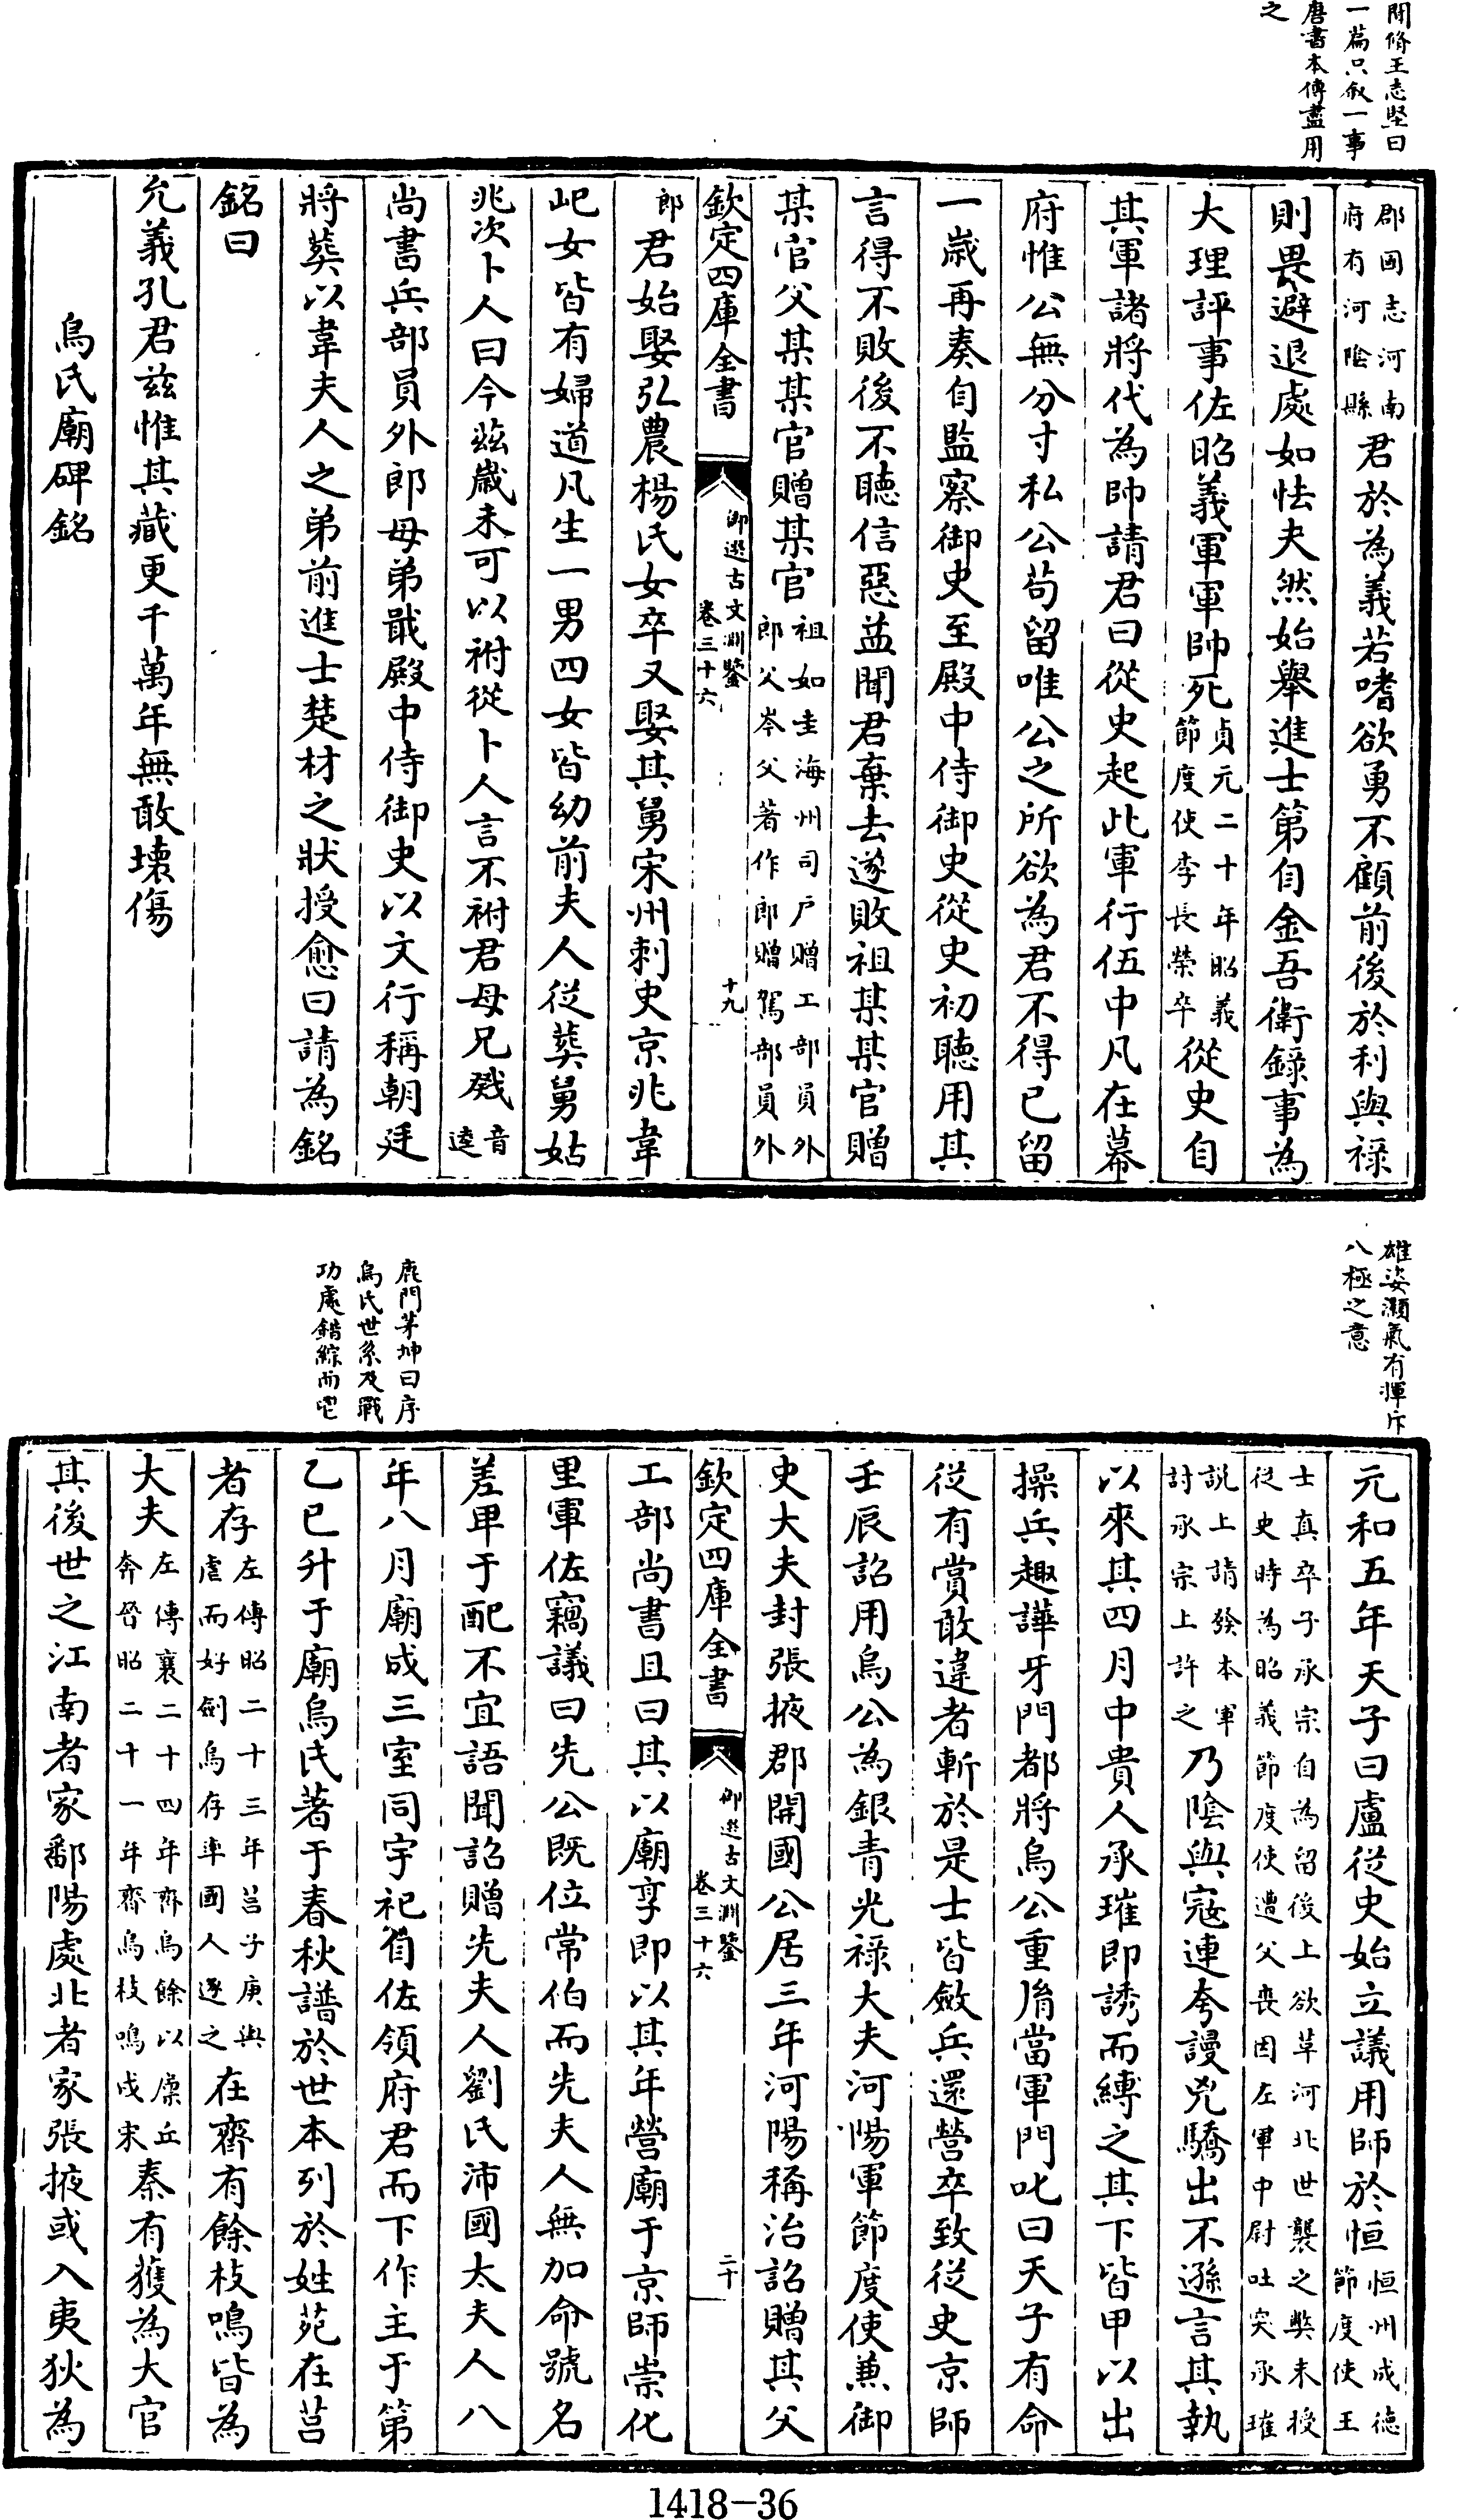 開脩王志堅曰
一篇只叙一事
唐書本傳盡用
之
郡國志河南
府有河隂縣君於為義若嗜欲勇不顧前後於利與祿
則畏避退處如怯夫然始舉進士第自金吾衛錄事為
大理評事佐昭義軍軍帥死貞元二十年昭義
節度使李長榮卒從史自
其軍諸將代為帥請君曰從史起此軍行伍中凡在幕
府惟公無分寸私公苟留唯公之所欲為君不得已留
一歲再奏自監察御史至殿中侍御史從史初聽用其
言得不敗後不聽信惡益聞君棄去遂敗祖某某官贈
某官父某某官贈某官祖如圭海州司戶贈工部員外
郎父岑父著作郎贈駕部員外
欽定四庫全書
御選古文淵鑒
卷三十六
十九
郎君始娶弘農楊氏女卒又娶其舅宋州刺史京兆韋
屺女皆有婦道凡生一男四女皆幼前夫人從葬舅姑
兆次卜人曰今兹歲未可以祔從卜人言不祔君母兄戣音
逵
尚書兵部員外郎母弟戢殿中侍御史以文行稱朝廷
將葬以韋夫人之弟前進士楚材之狀授愈曰請為銘
銘曰
允義孔君兹惟其藏更千萬年無敢壞傷
烏氏廟碑銘
雄姿灝氣有揮斥
八極之意
鹿門茅坤曰序
烏氏世系及戰
功處錯綜而
元和五年天子曰盧從史始立議用師於恒恒州成德
節度使王
士真卒子承宗自為留後上欲革河北世襲之獘未授
從史時為昭義節度使遭父喪因左軍中尉吐突承璀
說上請發本軍
討承宗上許之乃隂與寇連夸謾兇驕出不遜言其執
以來其四月中貴人承璀即誘而縛之其下皆甲以出
操兵趣譁牙門都將烏公重胤當軍門叱曰天子有命
從有賞敢違者斬於是士皆斂兵還營卒致從史京師
壬辰詔用烏公為銀青光祿大夫河陽軍節度使兼御
史大夫封張掖郡開國公居三年河陽稱治詔贈其父
欽定四庫全書
御選古文淵鑒
卷三十六
二十
工部尚書且曰其以廟享即以其年營廟于京師崇化
里軍佐竊議曰先公既位常伯而先夫人無加命號名
差卑于配不宜語聞詔贈先夫人劉氏沛國太夫人八
年八月廟成三室同宇祀自佐領府君而下作主于第
乙巳升于廟烏氏著于春秋譜於世本列於姓苑在莒
者存左傳昭二十三年莒子庚輿
虐而好劍烏存率國人逐之在齊有餘枝鳴皆為
大夫左傳襄二十四年齊烏餘以廩丘
奔晉昭二十一年齊烏枝鳴戍宋秦有獲為大官
其後世之江南者家鄱陽處北者家張掖或入夷狄為
1418-36